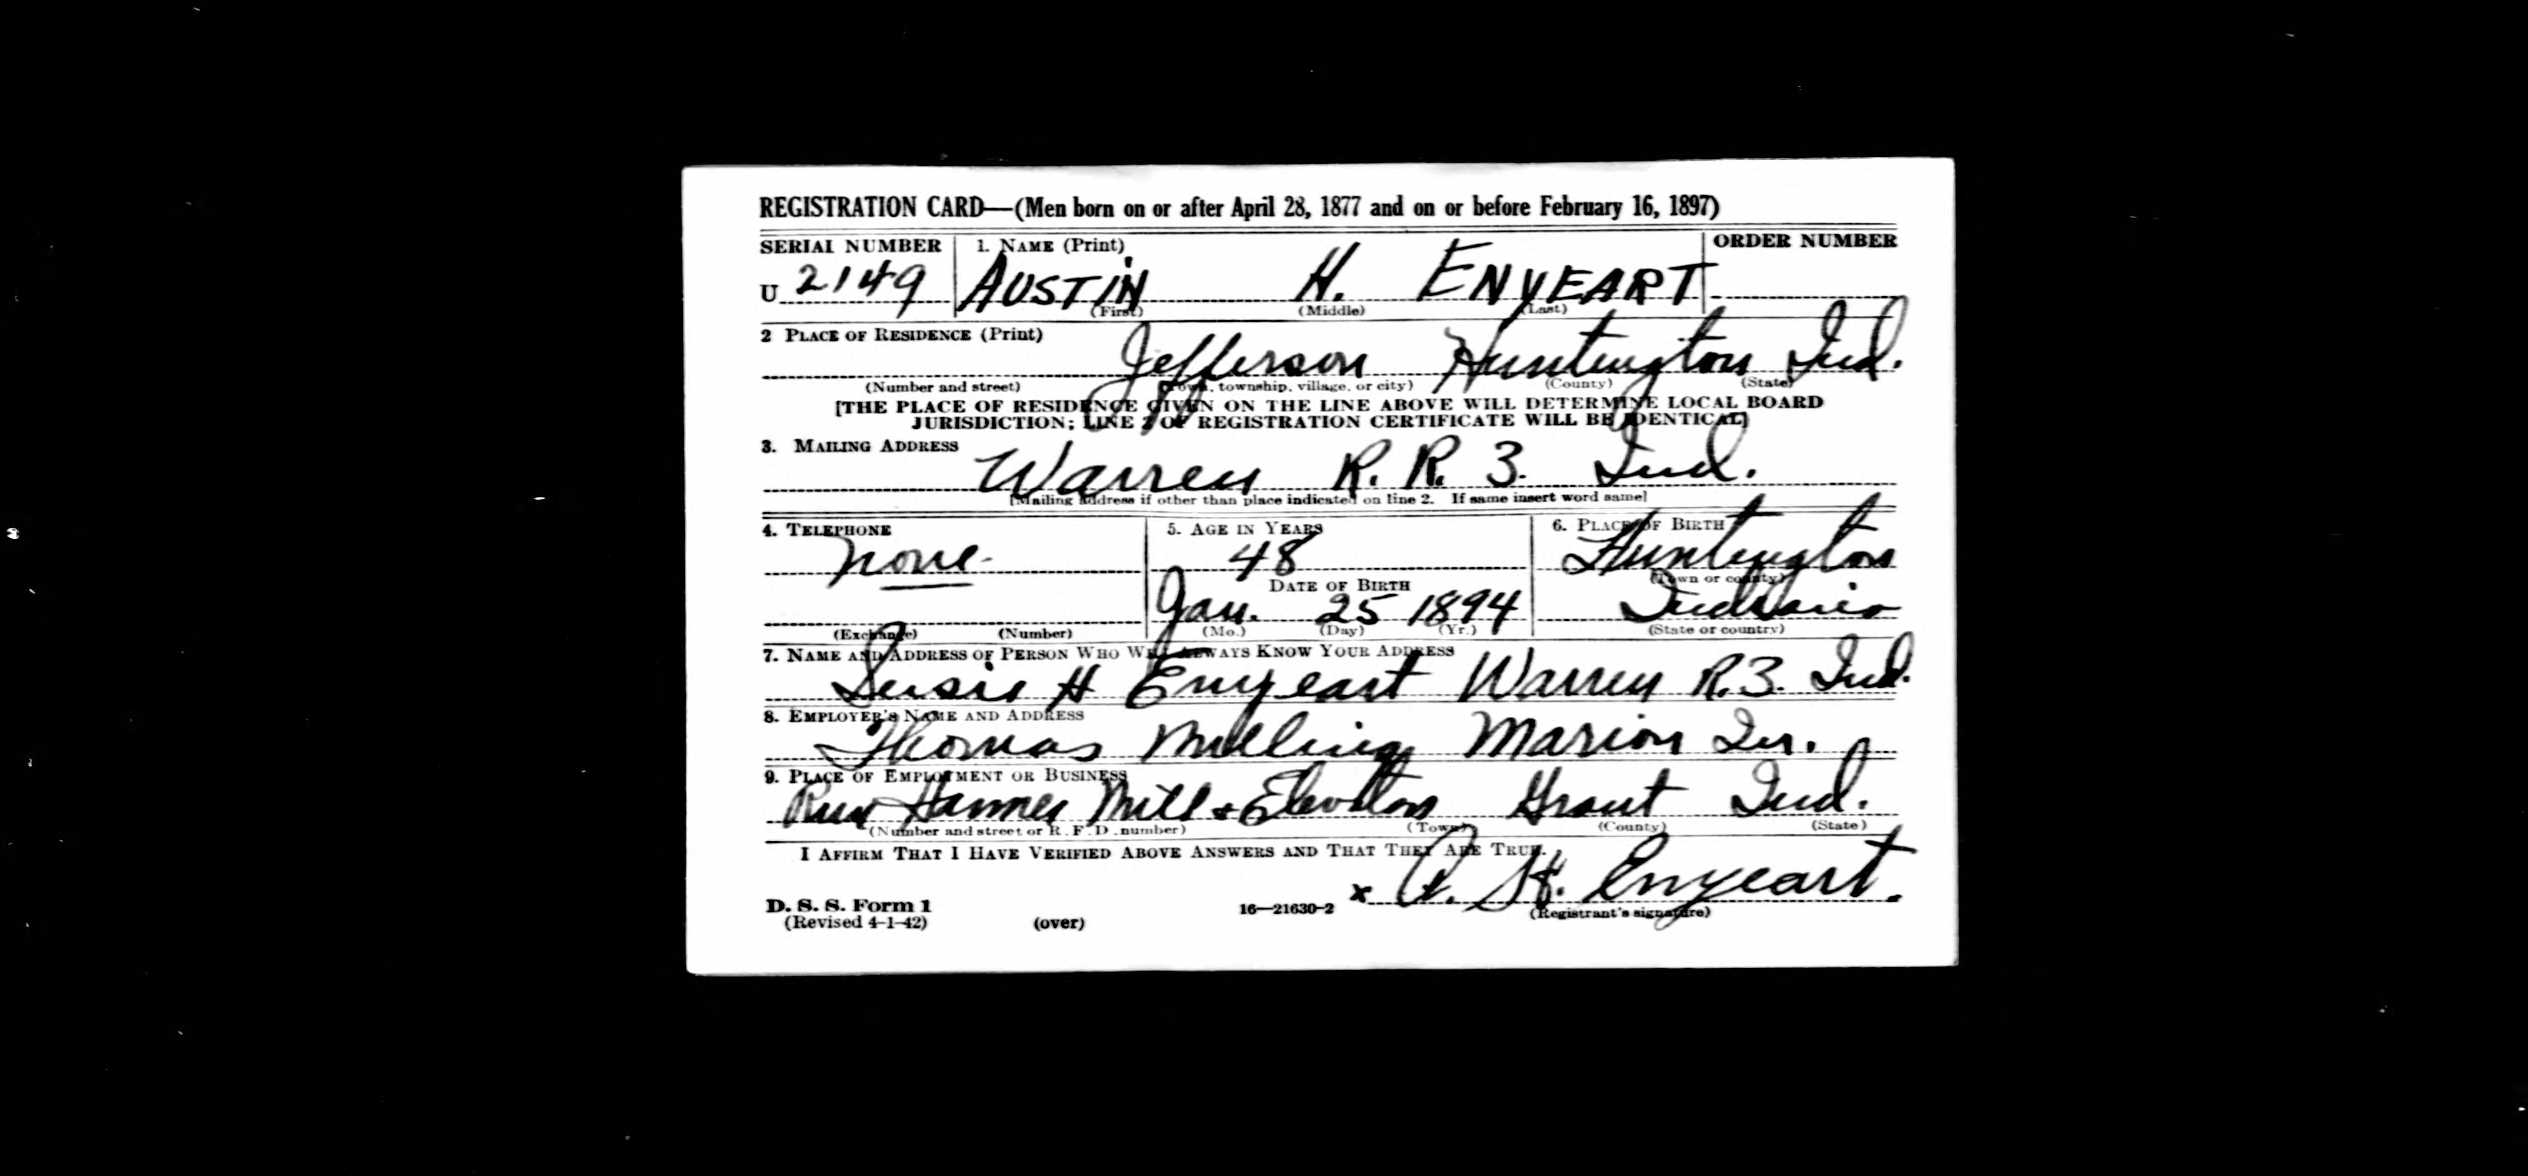 REGISTRATION CARD—(Men born on or after April 28, 1877 and on or before February 16, 1897)
SERIAL NUMBER 1. NAME (Print) ORDER NUMBER
U 2149 AUSTIN H. ENYEART
(First) (Middle) (Last)
2 PLACE OF RESIDENCE (Print)
Jefferson Huntington Ind.
(Number and street) (Town, township, village, or city) (County) (State)
[THE PLACE OF RESIDENCE GIVEN ON THE LINE ABOVE WILL DETERMINE LOCAL BOARD
JURISDICTION; LINE 2 OF REGISTRATION CERTIFICATE WILL BE IDENTICAL]
3. MAILING ADDRESS
Warren R. R. 3. Ind.
[Mailing address if other than place indicated on line 2. If same insert word same]
4. TELEPHONE 5. AGE IN YEARS 6. PLACE OF BIRTH
none 48 Huntington
DATE OF BIRTH (Town or county)
Jan. 25 1894 Indiana
(Exchange) (Number) (Mo.) (Day) (Yr.) (State or country)
7. NAME AND ADDRESS OF PERSON WHO WILL ALWAYS KNOW YOUR ADDRESS
Susie H Enyeart Warren R.3. Ind.
8. EMPLOYER'S NAME AND ADDRESS
Thomas Milling Marion In.
9. PLACE OF EMPLOYMENT OR BUSINESS
Mill + Grant Ind.
(Number and street or R. F. D. number) (Town) (County) (State)
I AFFIRM THAT I HAVE VERIFIED ABOVE ANSWERS AND THAT THEY ARE TRUE.
x A. H. Enyeart.
D. S. S. Form 1 16—21630-2 (Registrant's signature)
(Revised 4-1-42) (over)